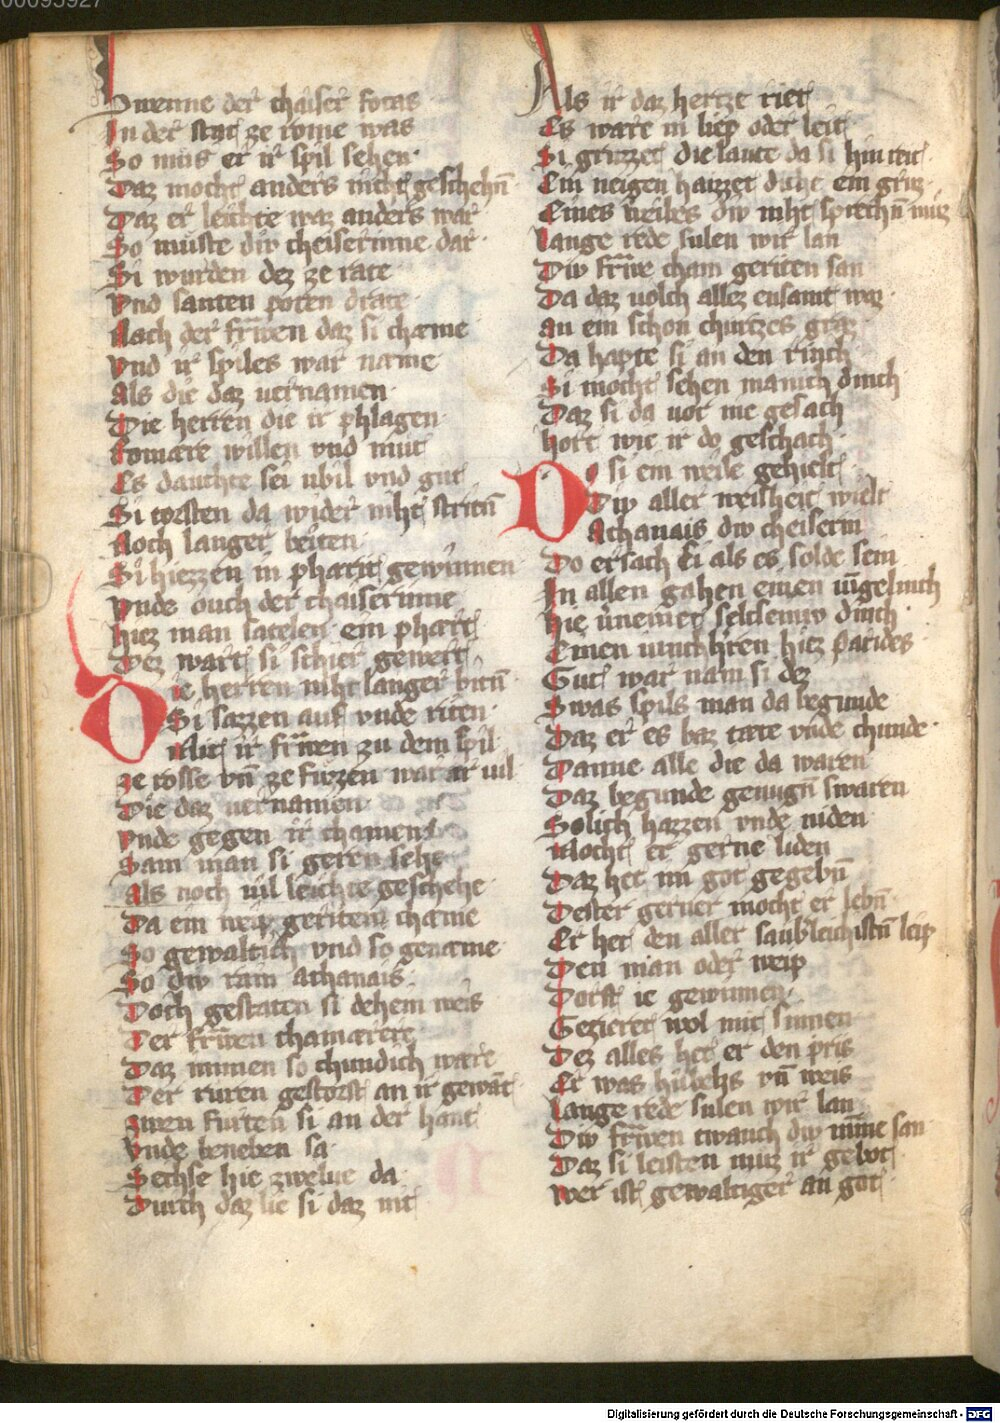 00095927
Swenne der chaiser focas
In der stat ze rome was
So mus er ir spil sehen
Daz mocht anders niht geschehn̄
Daz er leichte waz anders war
So muste div cheiserinne dar
Si wurden dez ze rate
Vnd santen poten drate
Nach der frowen daz si chæme
Vnd ir spiles war næme
Als die daz uernamen
Die herren die ir phlagen
Romære willen vnd mut
Es dauchte sei vbil vnd gut
Si torsten da wider niht stritn̄
Noch langer beiten
Si hiezzen in pharit gewinnen
Vnde ouch der chaiserinne
Hiez man satelen ein phært
Dez wart si schier gewert
Die herren niht langer bitn̄
Si sazzen auf vnde riten
Mit ir frowen zu dem spil
ze rosse vn̄ ze fuzzen war ir uil
Die daz uernamen
Vnde gegen ir chamen
Sam man si geren sehe
Als noch uil leichte geschehe
Da ein weip geriten chæme
So gewaltich vnd so genæme
So div ram athanais
Doch gestaten si dehein weis
Der frowen chamerere
Daz iemen so chundich wære
Der ruren getorst an ir gewāt
zwen furten si an der hant
Vnde beneben sa
Sechse hie zwelue da
Durch daz lie si daz nit
Als ir daz hertze riet
Es wære in liep oder leit
Si gruzzet die laute da si hin reit
Ein neigen haizzet duht ein gruz
Eines weiles div niht sprechn̄ muz
Lange rede sulen wir lan
Div frowe cham geriten san
Da daz uolch allez ensamt waz
an ein schon churtzes graz
Da hapte si an den rinch
Si mocht sehen manich dinch
Daz si da uor nie gesach
hort wie ir do geschach
Do si ein weile gehielt
Div aller weisheit wielt
Athanais div cheiserin
Do ersach si als es solde sein
In allen gahen einen iu̅gelinch
hie uernemet seltseniv dinch
Einen iunchh̓ren hiez parides
Gut war nam si dez
Swas spils man da begunde
Daz er es baz tæte vnde chunde
Danne alle die da waren
Daz begunde genugn̄ swaren
Solich hazzen vnde niden
Mocht er gerne liden
Daz het im got gegebn̄
Dester gerner mocht er lebn̄
Er het den aller saub̓leichistn̄ leip
Den man oder weip
Dorft ie gewinnen
Gezieret wol mit sinnen
Dez alles het er den pris
Er was hubchs vn̄ weis
Lange rede sulen wir lan
Div frowen twanch div minne san
Daz si leisten muz ir gebot
wer ist gewaltiger an got
Digitalisierung gefördert durch die Deutsche Forschungsgemeinschaft - DFG